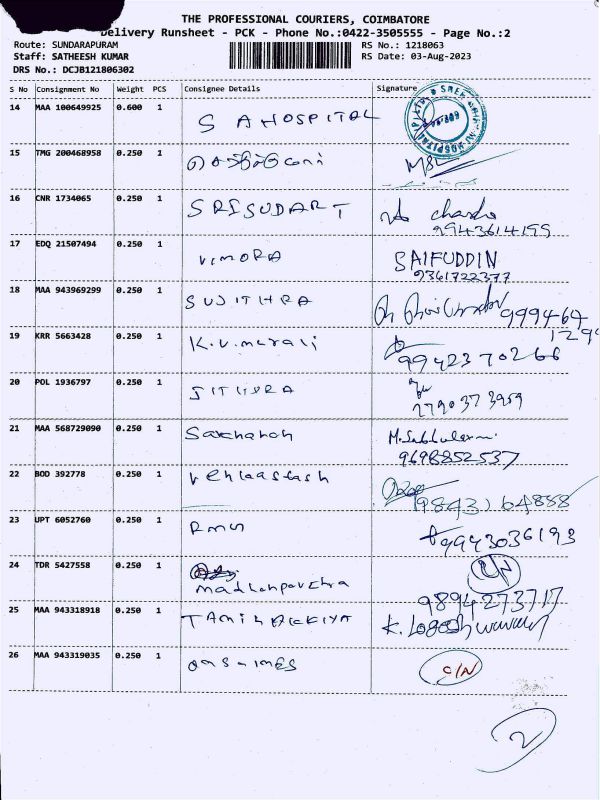 THE PROFESSIONAL COURIERS, COIMBATORE
Delivery Runsheet - PCK - Phone No.:0422-3505555 - Page No.:2
Route: SUNDARAPURAM RS No.: 1218063
Staff: SATHEESH KUMAR RS Date: 03-Aug-2023
DRS No.: DCJB121806302
S No Consignment No Weight PCS Consignee Details Signature
14 MAA 100649925 0.600 1 S A HOSPITAL
15 TMG 200468958 0.250 1
16 CNR 1734065 0.250 1 SRISUDART
9943614199
17 EDQ 21507494 0.250 1 VIMORA SAIFUDDIN
9361722377
18 MAA 943969299 0.250 1 SUJITHRA 999464
129
19 KRR 5663428 0.250 1 K.V.murali 9942370266
20 POL 1936797 0.250 1
2790373959
21 MAA 568729090 0.250 1 M.Subbulaxmi
9698852537
22 BOD 392778 0.250 1
23 UPT 6052760 0.250 1 RMS 9943036193
24 TDR 5427558 0.250 1 C/N
9894273717
25 MAA 943318918 0.250 1 K. Logeshwaran
26 MAA 943319035 0.250 1 C/N
2